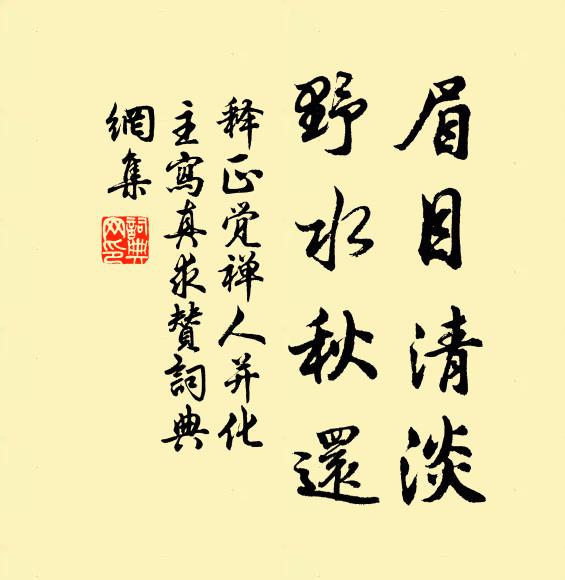 眉目清淡
野水秋還
释正觉禅人并化
主寫真求贊詞典
網集
詞典網印